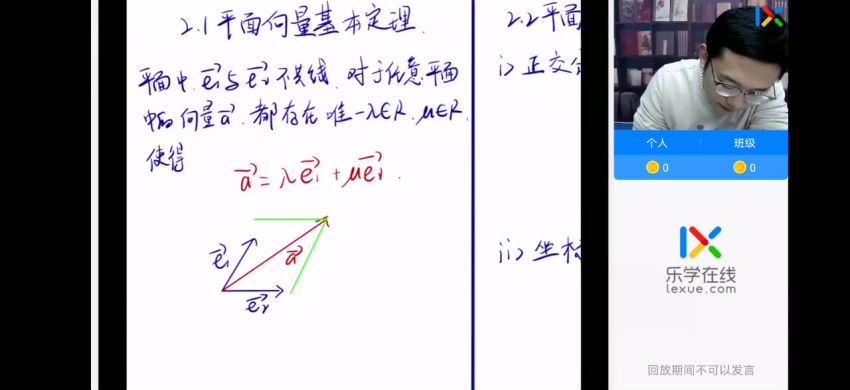 2.1 平面向量基本定理.
平面中, e₁⃗ 与 e₂⃗ 不共线, 对于任意平面
中的向量 a⃗, 都存在唯一 λ∈R, μ∈R,
使得
a⃗ = λe₁⃗ + μe₂⃗.
e₁⃗
a⃗
e₂⃗
2.2 平面
i> 正交分
ii> 坐标
个人 班级
0 0
乐学在线
lexue.com
回放期间不可以发言